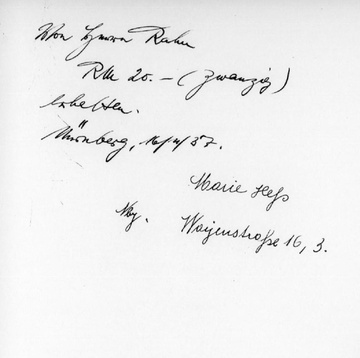 Von Herrn Rahn
RM 20.- (zwanzig)
erhalten.
Nürnberg, 16/4/37.
Marie Heß
Nbg. Waizenstraße 16, 3.